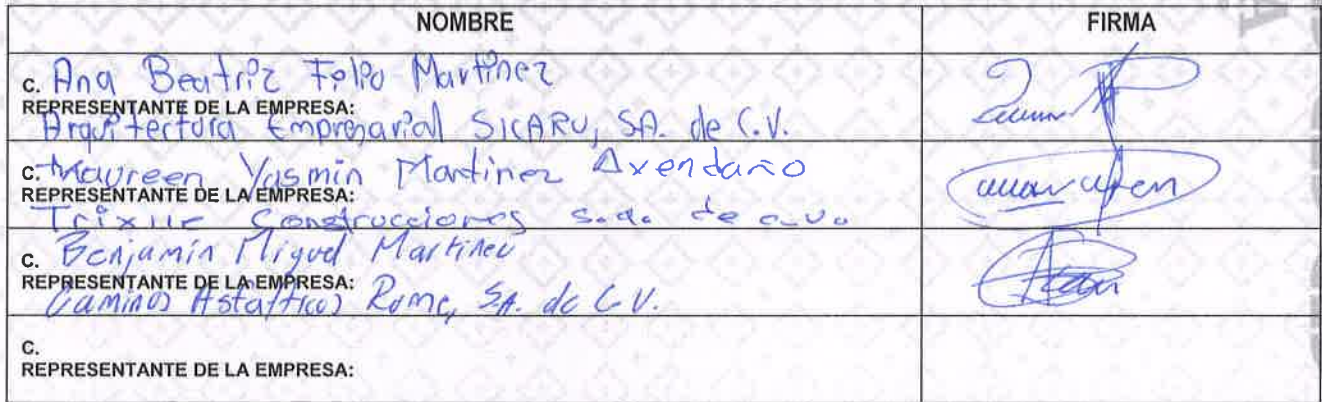 NOMBRE FIRMA
C. Ana Beatriz Felpo Martinez
REPRESENTANTE DE LA EMPRESA:
Arquitectura Empresarial SICARU, SA. de C.V.
C. Maureen Yasmin Martinez Avendaño
REPRESENTANTE DE LA EMPRESA:
Trixile Construcciones s.a. de c.v.
C. Benjamin Miguel Martinez
REPRESENTANTE DE LA EMPRESA:
Caminos Asfalticos Rome, S.A. de C.V.
C.
REPRESENTANTE DE LA EMPRESA: